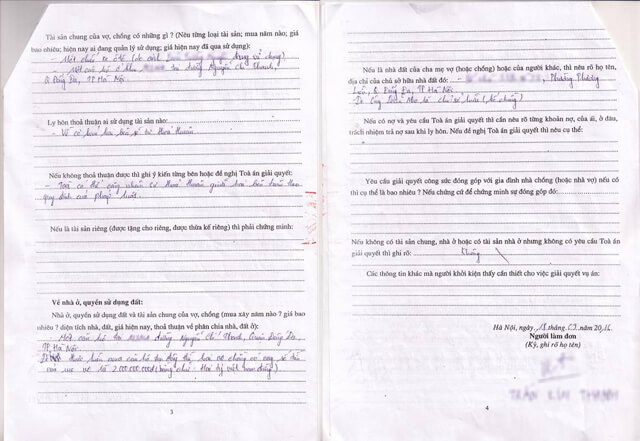 Tài sản chung của vợ, chồng có những gì ? (Nêu từng loại tài sản; mua năm nào; giá
bao nhiêu; hiện nay ai đang quản lý sử dụng; giá hiện nay đã qua sử dụng):
- Một chiếc xe ôtô
Một căn hộ ở khu tại đường Nguyễn Chí Thanh,
Q Đống Đa, TP Hà Nội.
Ly hôn thoả thuận sử dụng tài sản nào:
- Vợ có hai bên sẽ tự thoả thuận
Nếu không thoả thuận được thì ghi ý kiến từng bên hoặc đề nghị Toà án giải quyết:
- Toà có thể công nhận sự thoả thuận giữa hai bên theo
quy định của pháp luật.
Nếu là tài sản riêng (được tặng cho riêng, được thừa kế riêng) thì phải chứng minh:
Về nhà ở, quyền sử dụng đất:
Nhà ở, quyền sử dụng đất và tài sản chung của vợ, chồng (mua xây năm nào ? giá bao
nhiêu ? diện tích nhà, đất, giá hiện nay, thoả thuận về phân chia nhà, đất ở):
Một căn hộ tại đường Nguyễn Chí Thanh, Quận Đống Đa,
TP Hà Nội.
căn hộ hai vợ chồng có vay
của mẹ vợ là 2.000.000.000đ (bằng chữ: Hai tỷ việt nam đồng)
3
Nếu là nhà đất của cha mẹ vợ (hoặc chồng) hoặc của người khác, thì nêu rõ họ tên,
địa chỉ của chủ sở hữu nhà đất đó: Phường Phương
Liên, Q Đống Đa, TP Hà Nội
Nếu có nợ và yêu cầu Toà án giải quyết thì cần nêu rõ từng khoản nợ, của ai, ở đâu,
trách nhiệm trả nợ sau khi ly hôn. Nếu đề nghị Toà án giải quyết thì nêu cụ thể:
Yêu cầu giải quyết công sức đóng góp với gia đình nhà chồng (hoặc nhà vợ) nếu có
thì cụ thể là bao nhiêu ? Nếu chứng cứ để chứng minh sự đóng góp đó:
Nếu không có tài sản chung, nhà ở hoặc có tài sản nhà ở nhưng không có yêu cầu Toà án
giải quyết thì ghi rõ: Không
Các thông tin khác mà người khởi kiện thấy cần thiết cho việc giải quyết vụ án:
Hà Nội, ngày 18 tháng năm 2016
Người làm đơn
(Ký, ghi rõ họ tên)
TRẦN KIM THANH
4